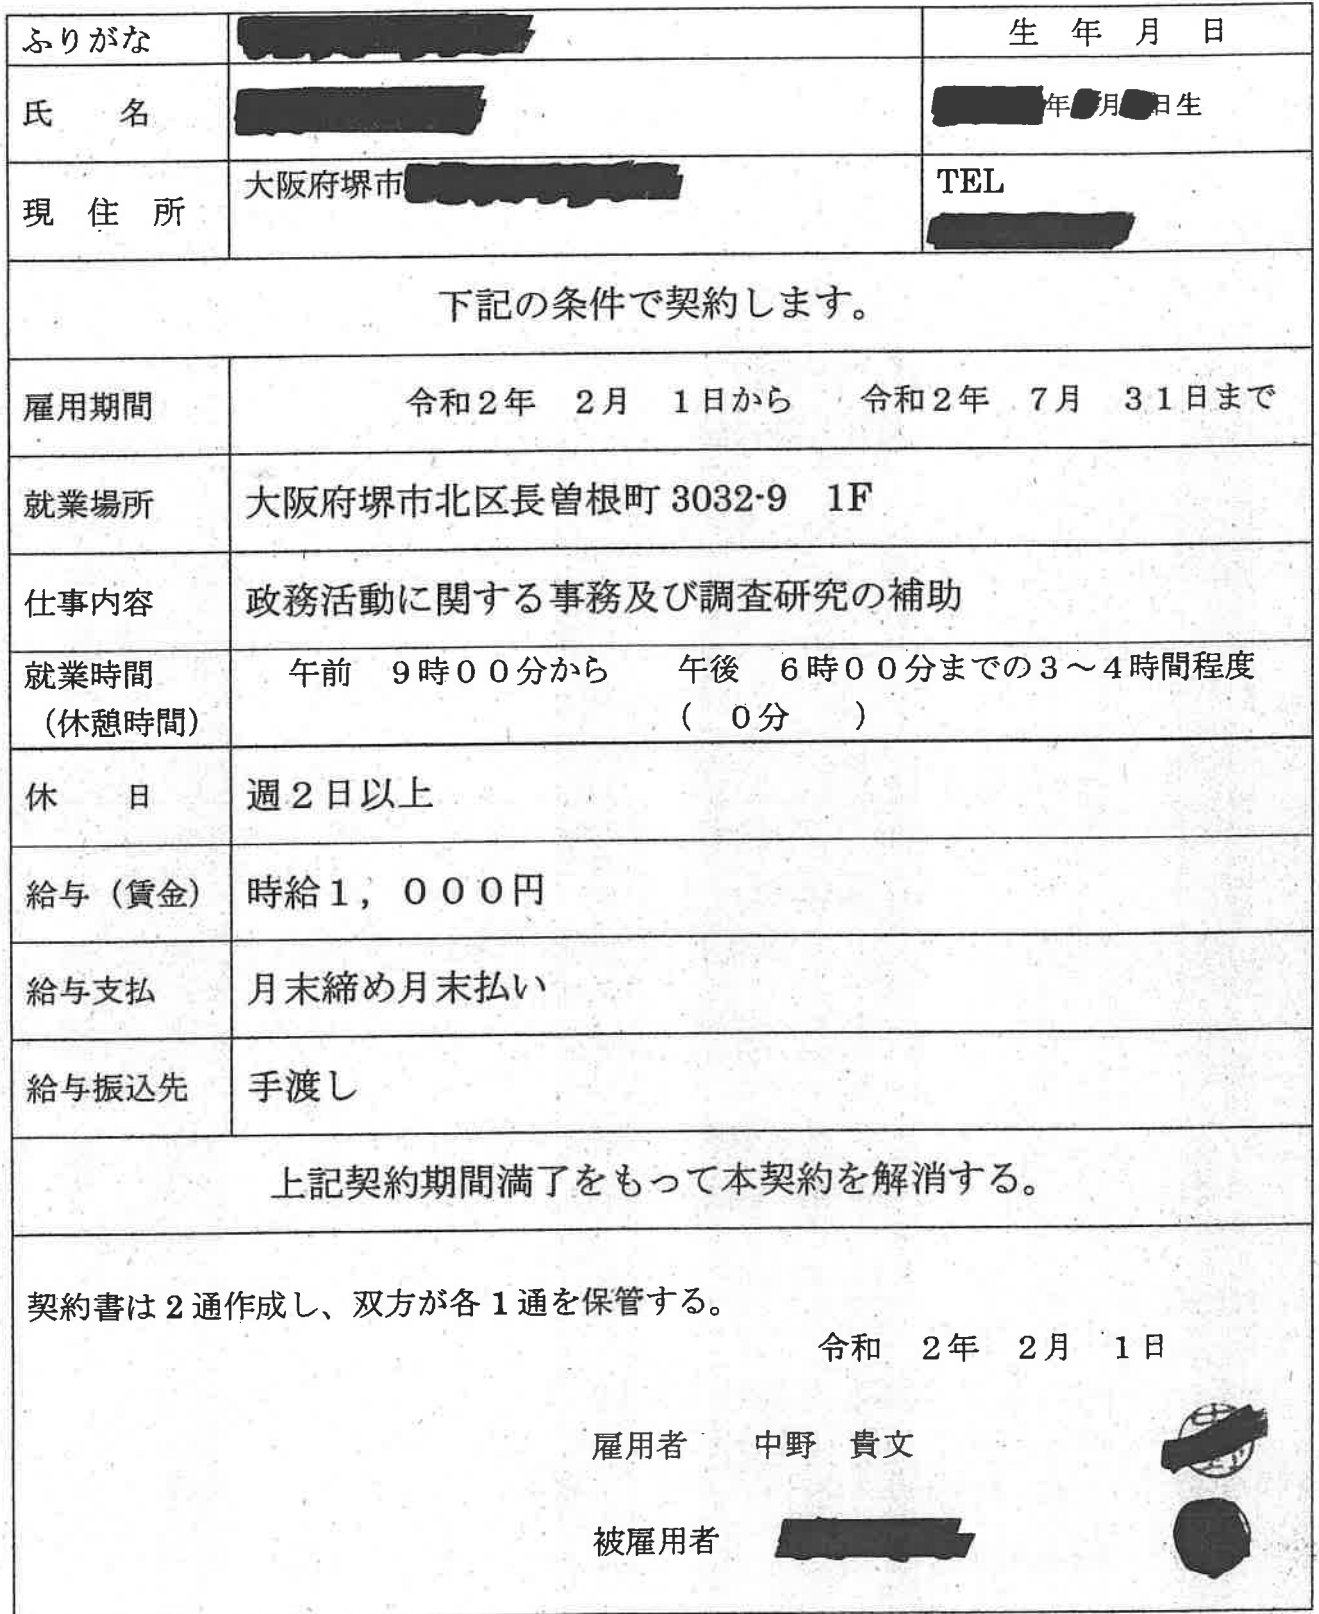 ふりがな
生 年 月 日
氏 名
年 月 日生
現 住 所
大阪府堺市
TEL
下記の条件で契約します。
雇用期間
令和2年 2月 1日から 令和2年 7月 31日まで
就業場所
大阪府堺市北区長曽根町 3032-9 1F
仕事内容
政務活動に関する事務及び調査研究の補助
就業時間
(休憩時間)
午前 9時00分から 午後 6時00分までの3~4時間程度
( 0分 )
休 日
週2日以上
給与(賃金)
時給1,000円
給与支払
月末締め月末払い
給与振込先
手渡し
上記契約期間満了をもって本契約を解消する。
契約書は2通作成し、双方が各1通を保管する。
令和 2年 2月 1日
雇用者 中野 貴文
被雇用者